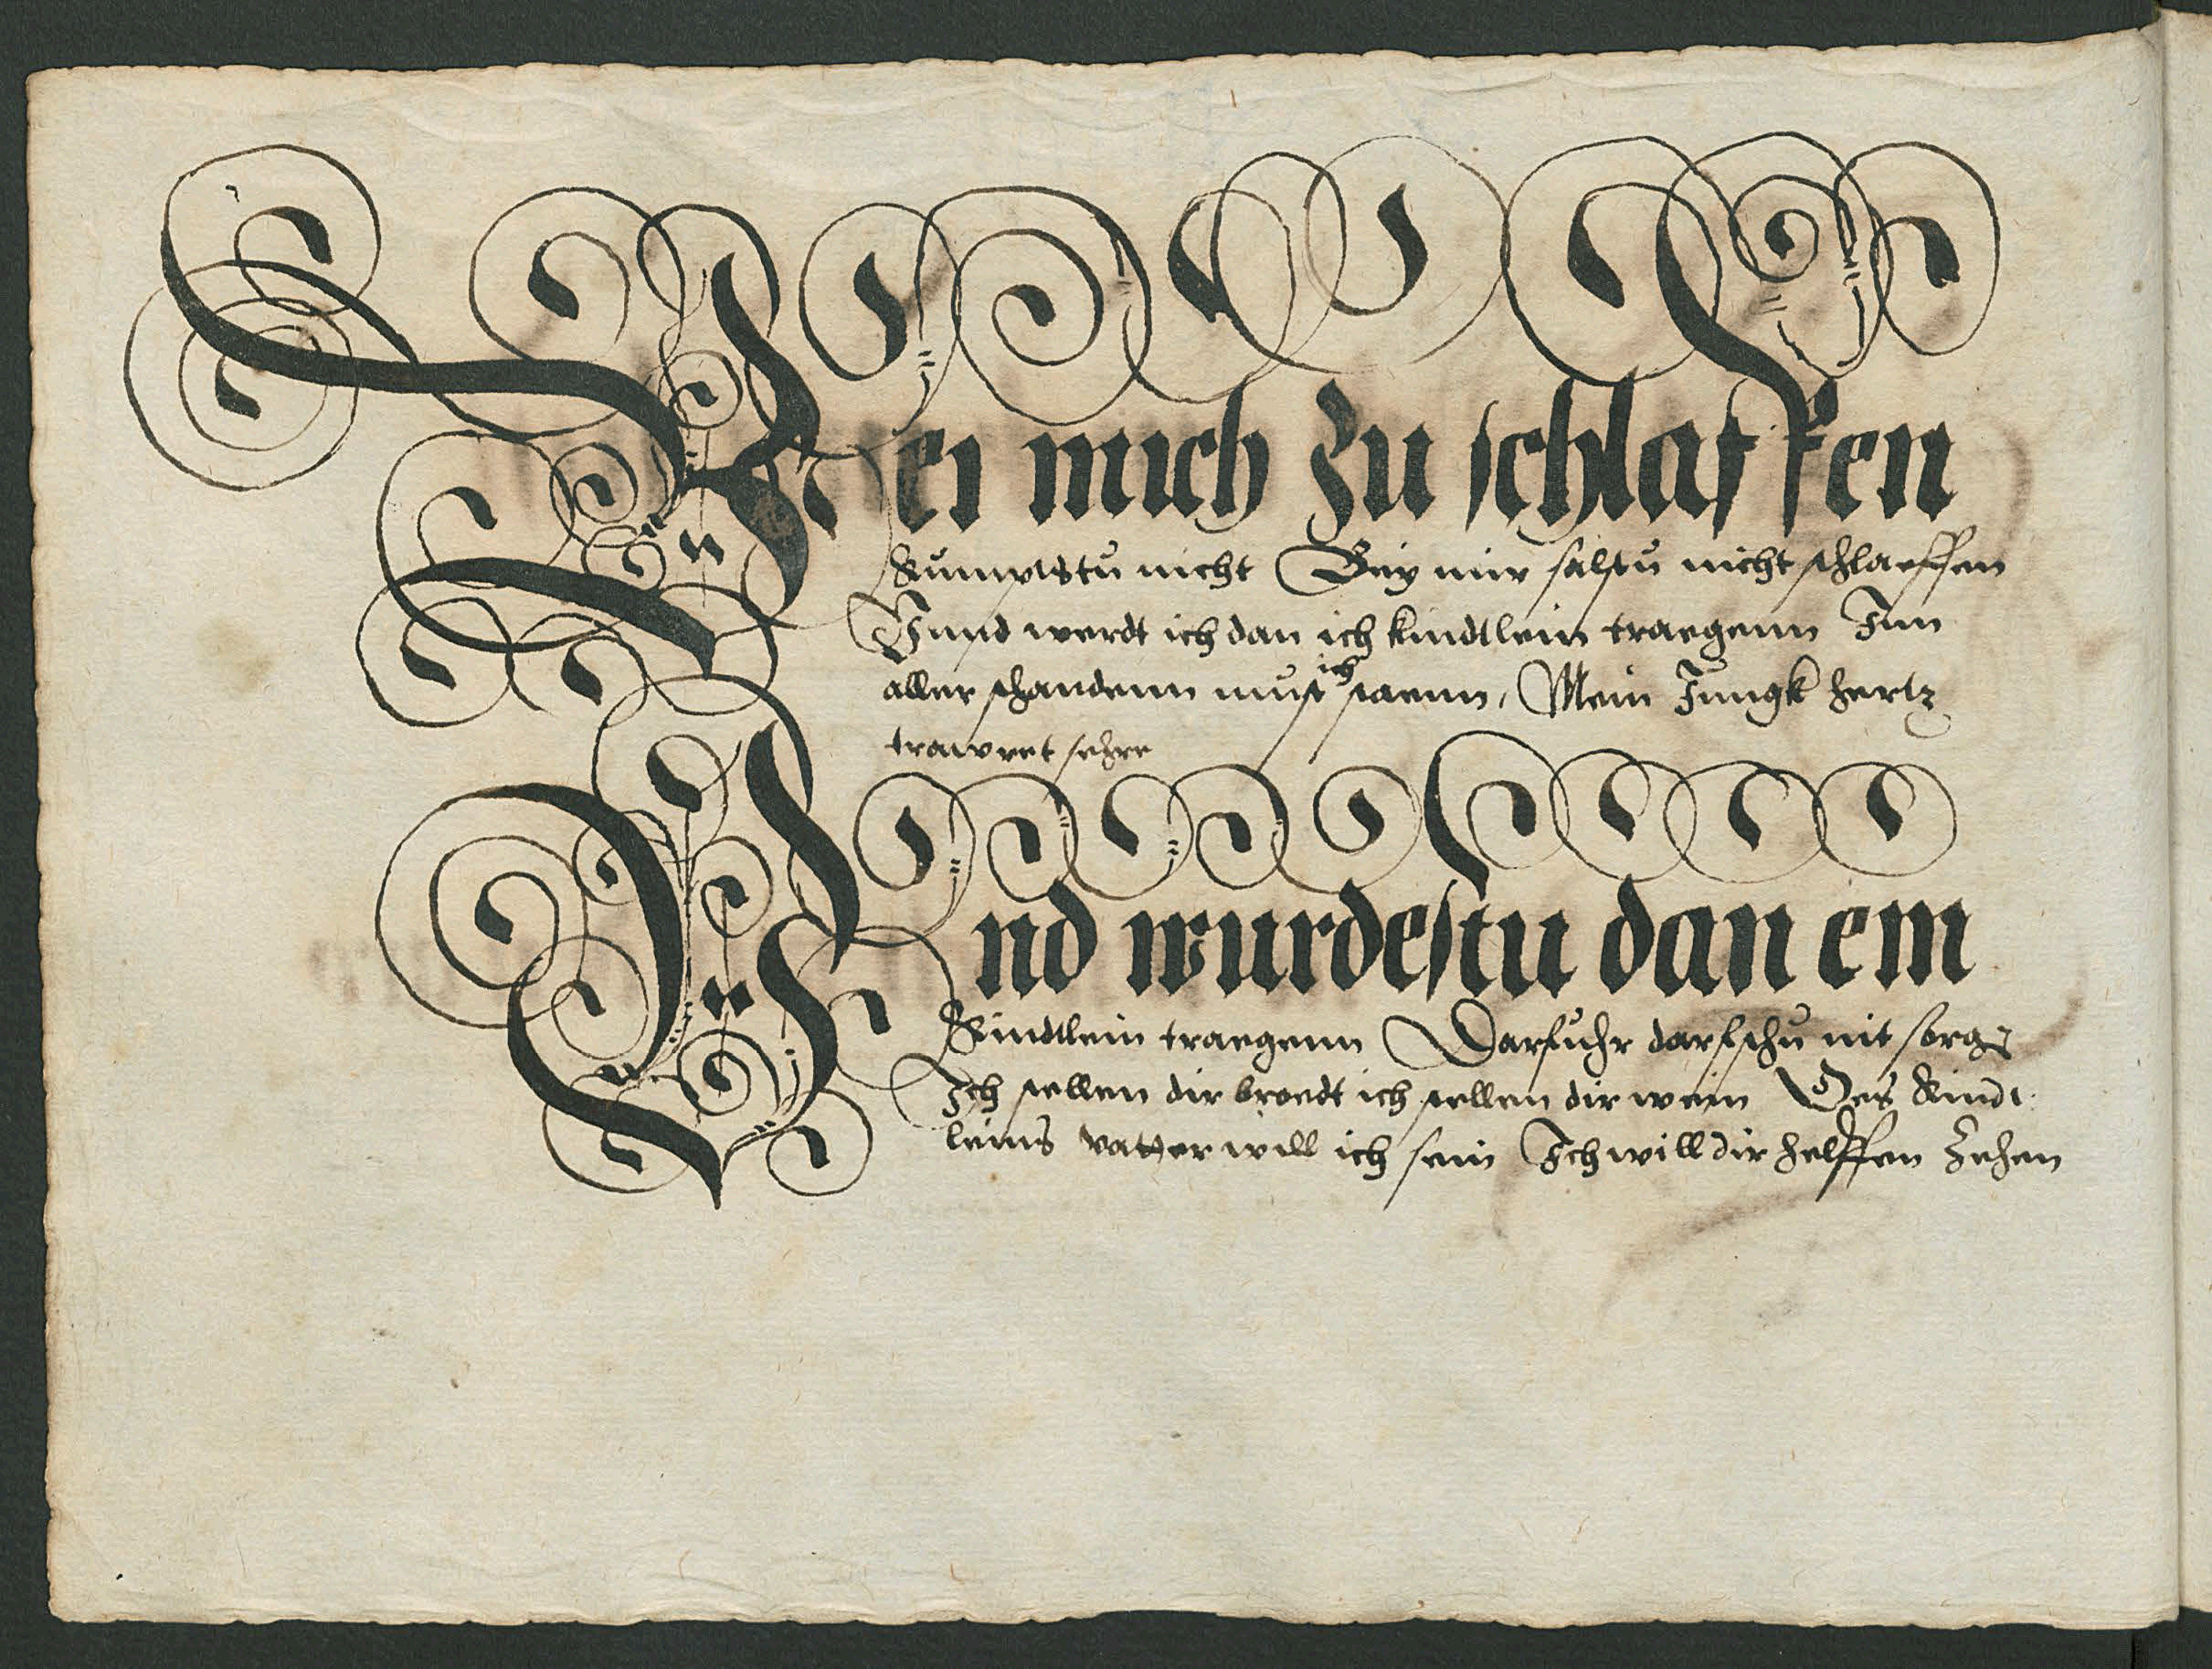 Bei mich zu schlaffen
Kumpstu nicht Bey mir salstu nicht schlaeffen
Vnnd werdt ich dan ich kindtlein traegenn Inn
aller schandenn must ich staenn, Mein Jungk hertz
trawret sehre
Vnd wurdestu dan ein
Kindtlein traegenn Darfuhr darfschu nit sorgen
Ich stellen dir broedt ich stellen dir wein Des Kindt
leins vatter will ich sein Ich will dir helffen Zehen